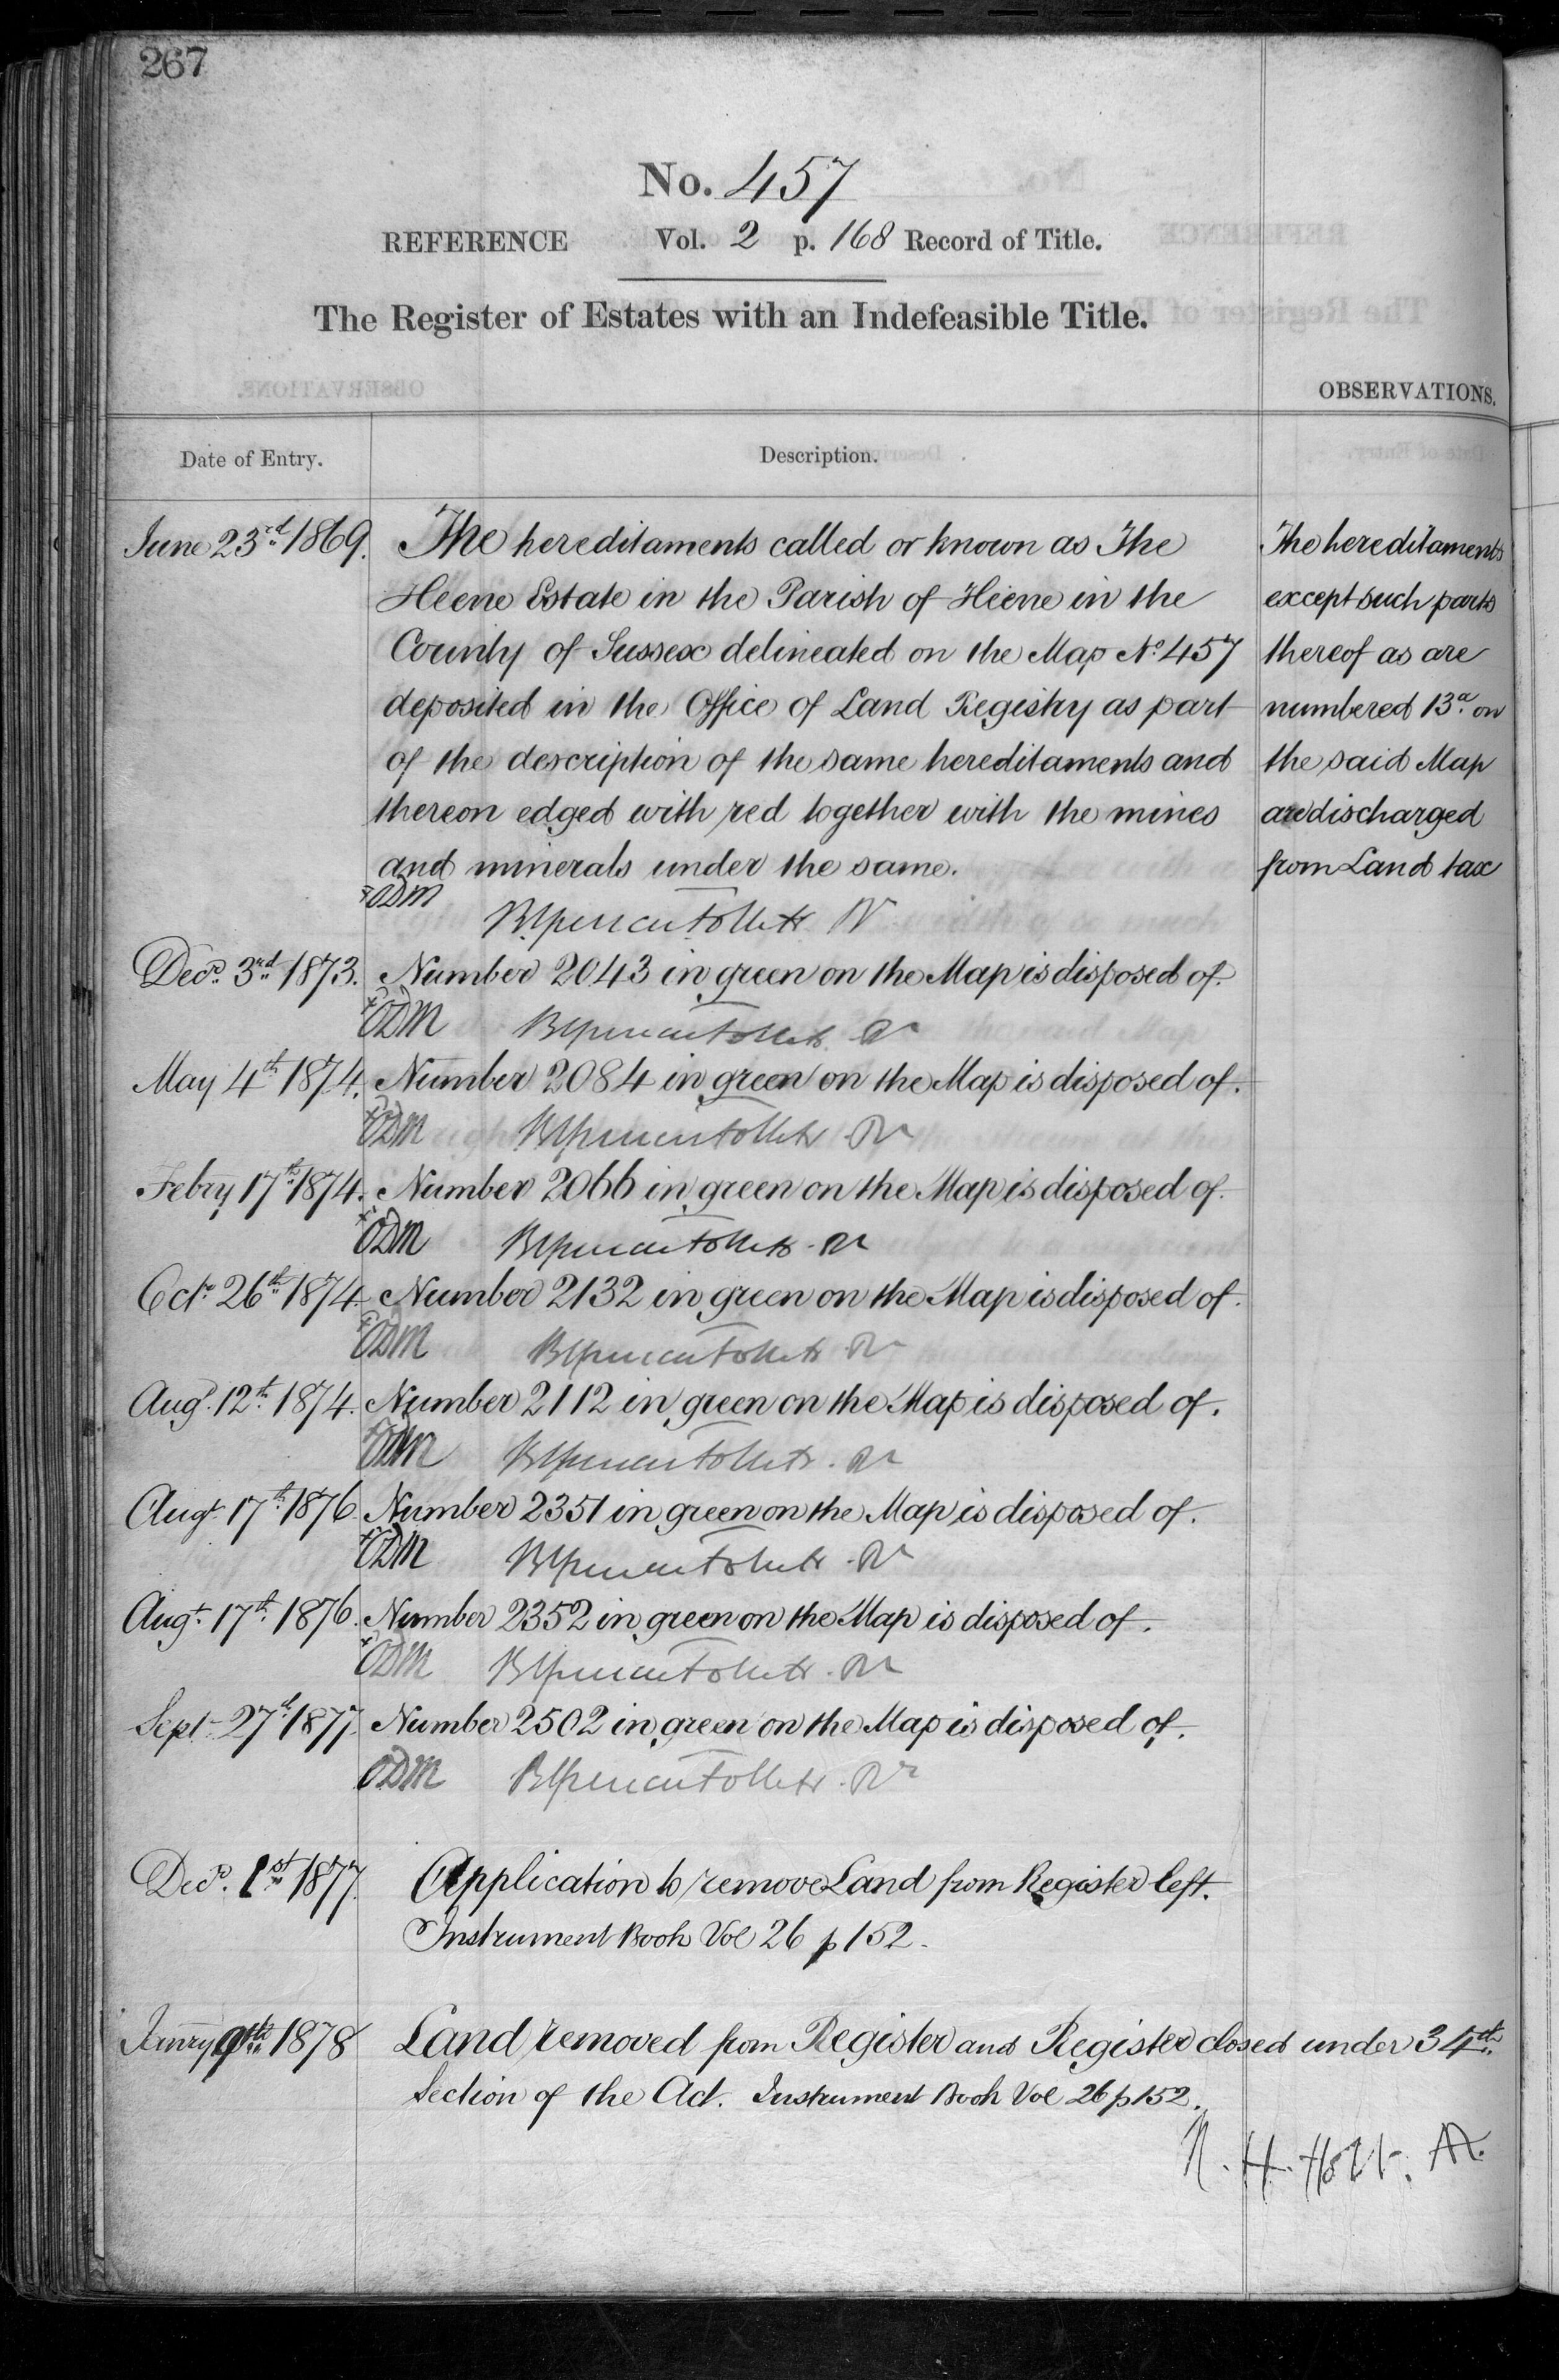 267
No. 457
REFERENCE Vol. 2 p. 168 Record of Title.
The Register of Estates with an Indefeasible Title.
OBSERVATIONS.
Date of Entry. Description.
June 23rd 1869. The hereditaments called or known as The
Heene Estate in the Parish of Heene in the
County of Sussex delineated on the Map No 457
deposited in the Office of Land Registry as part
of the description of the same hereditaments and
thereon edged with red together with the mines
and minerals under the same.
The hereditaments
except such parts
thereof as are
numbered 13a on
the said Map
are discharged
from Land tax
ODM
Decr. 3rd 1873. Number 2043 in green on the Map is disposed of.
ODM
May 4th 1874. Number 2084 in green on the Map is disposed of.
ODM
Febry 17th 1874. Number 2066 in green on the Map is disposed of.
ODM
Octr. 26th 1874 Number 2132 in green on the Map is disposed of.
ODM
Augt. 12th 1874. Number 2112 in green on the Map is disposed of.
ODM
Augt 17th 1876 Number 2351 in green on the Map is disposed of.
ODM
Augt. 17th 1876. Number 2352 in green on the Map is disposed of.
ODM
Sept 27th 1877 Number 2502 in green on the Map is disposed of.
ODM
Decr. 1st 1877. Application to remove Land from Register left.
Instrument Book Vol 26 p 152.
Janry 9th 1878 Land removed from Register and Register closed under 34th
Section of the Act. Instrument Book Vol 26 p 152.
H. Holt. AR.